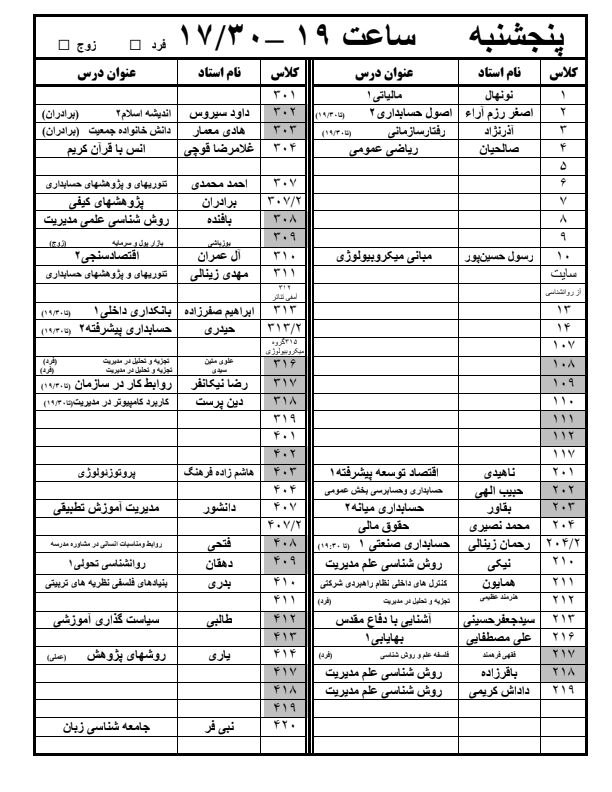 پنجشنبه ساعت ۱۹ – ۱۷/۳۰ فرد □ زوج □
کلاس نام استاد عنوان درس
۱ نونهال مالیاتی۱
۲ اصغر رزم آراء اصول حسابداری۲ (تا۱۹/۳۰)
۳ آذرنژاد رفتارسازمانی (تا۱۹/۳۰)
۴ صالحیان ریاضی عمومی
۵
۶
۷
۸
۹
۱۰ رسول حسین‌پور مبانی میکروبیولوژی
سایت
از روانشناسی
۱۳
۱۴
۱۰۷
۱۰۸
۱۰۹
۱۱۰
۱۱۱
۱۱۲
۱۱۷
۲۰۱ ناهیدی اقتصاد توسعه پیشرفته۱
۲۰۲ حبیب الهی حسابداری وحسابرسی بخش عمومی
۲۰۳ بقاور حسابداری میانه۲
۲۰۴ محمد نصیری حقوق مالی
۲۰۴/۲ رحمان زینالی حسابداری صنعتی ۱ (تا۱۹/۳۰)
۲۱۰ نیکی روش شناسی علم مدیریت
۲۱۱ همایون کنترل های داخلی نظام راهبردی شرکتی
۲۱۲ هنرمند عظیمی تجزیه و تحلیل در مدیریت (فرد)
۲۱۳ سیدجعفرحسینی آشنایی با دفاع مقدس
۲۱۶ علی مصطفایی بهایابی۱
۲۱۷ فقهی فرهمند فلسفه علم و روش شناسی (فرد)
۲۱۸ باقرزاده روش شناسی علم مدیریت
۲۱۹ داداش کریمی روش شناسی علم مدیریت
کلاس نام استاد عنوان درس
۳۰۱
۳۰۲ داود سیروس اندیشه اسلام۲ (برادران)
۳۰۳ هادی معمار دانش خانواده جمعیت (برادران)
۳۰۴ غلامرضا قوچی انس با قرآن کریم
۳۰۷ احمد محمدی تئوریهای و پژوهشهای حسابداری
۳۰۷/۲ برادران پژوهشهای کیفی
۳۰۸ بافنده روش شناسی علمی مدیریت
۳۰۹ بوزباشی بازار پول و سرمایه (زوج)
۳۱۰ آل عمران اقتصادسنجی۲
۳۱۱ مهدی زینالی تئوریهای و پژوهشهای حسابداری
۳۱۲
آمفی تئاتر
۳۱۳ ابراهیم صفرزاده بانکداری داخلی۱ (تا۱۹/۳۰)
۳۱۳/۲ حیدری حسابداری پیشرفته۲ (تا۱۹/۳۰)
۳۱۵گروه
میکروبیولوژی
۳۱۶ علوی متین تجزیه و تحلیل در مدیریت (فرد)
سیدی تجزیه و تحلیل در مدیریت (فرد)
۳۱۷ رضا نیکانفر روابط کار در سازمان (تا۱۹/۳۰)
۳۱۸ دین پرست کاربرد کامپیوتر در مدیریت(تا۱۹/۳۰)
۳۱۹
۴۰۱
۴۰۲
۴۰۳ هاشم زاده فرهنگ پروتوزئولوژی
۴۰۴
۴۰۷ دانشور مدیریت آموزش تطبیقی
۴۰۷/۲
۴۰۸ فتحی روابط ومناسبات انسانی در مشاوره مدرسه
۴۰۹ دهقان روانشناسی تحولی۱
۴۱۰ بدری بنیادهای فلسفی نظریه های تربیتی
۴۱۱
۴۱۲ طالبی سیاست گذاری آموزشی
۴۱۳
۴۱۴ یاری روشهای پژوهش (عملی)
۴۱۷
۴۱۸
۴۱۹
۴۲۰ نبی فر جامعه شناسی زبان